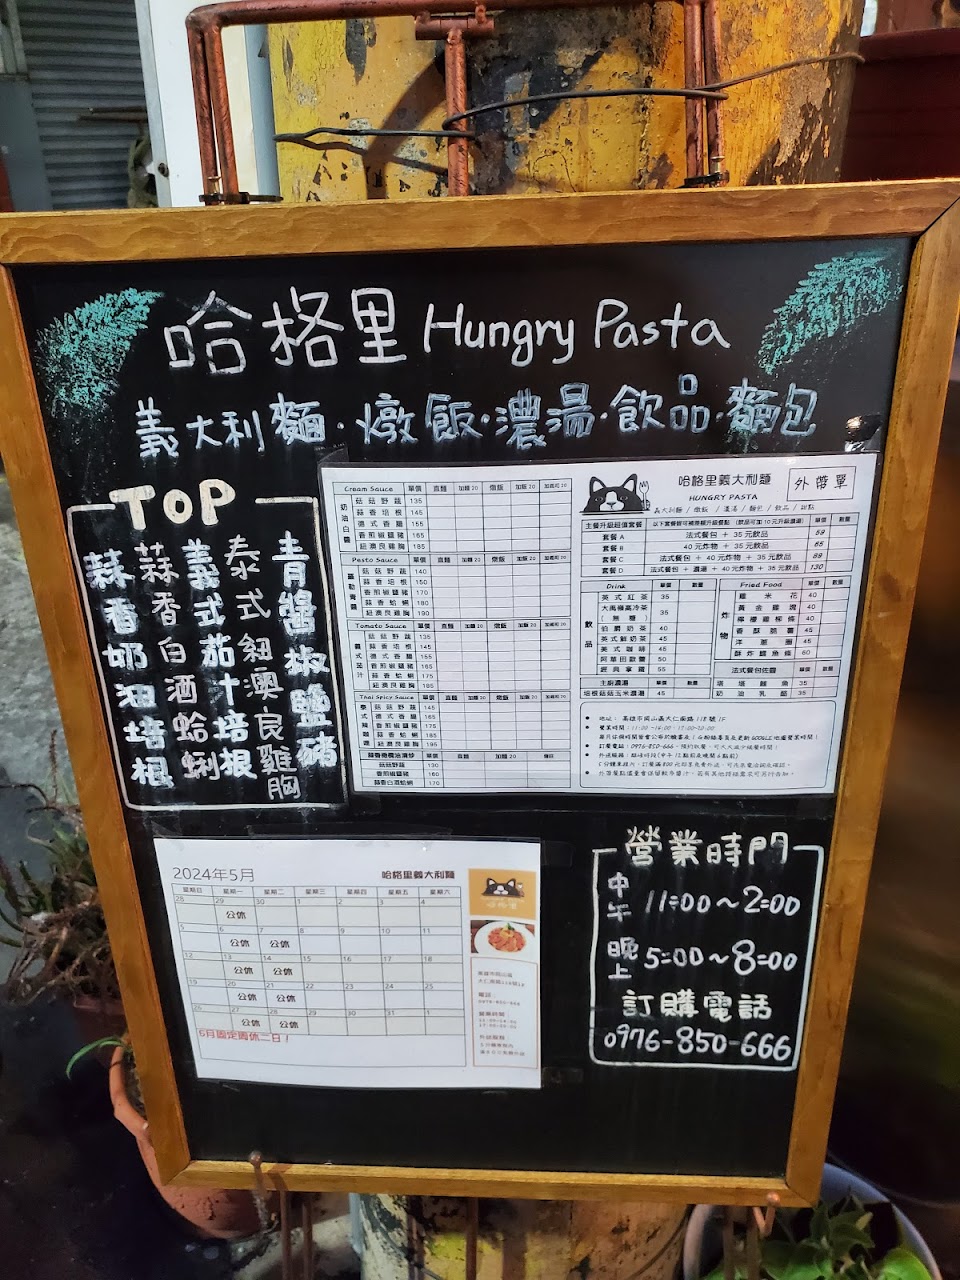 哈格里 Hungry Pasta
義大利麵·燉飯·濃湯·飲品·麵包
TOP
蒜香奶油培根
蒜香白酒蛤蜊
義式茄汁培根
泰式紐澳良雞胸
青醬椒鹽豬
Cream Sauce 單價 直麵 加麵20 燉飯 加飯20
奶油白醬
菇菇野蔬 135
蒜香培根 145
德式香腸 155
香煎椒鹽豬 165
紐澳良雞胸 185
Pesto Sauce 單價 直麵 加麵20 燉飯 加飯20
羅勒青醬
菇菇野蔬 140
蒜香培根 150
香煎椒鹽豬 170
蒜香蛤蜊 180
紐澳良雞胸 190
Tomato Sauce 單價 直麵 加麵20 燉飯 加飯20
義式茄汁
菇菇野蔬 135
蒜香培根 145
德式香腸 155
香煎椒鹽豬 165
紐澳良雞胸 185
Thai Spicy Sauce 單價 直麵 加麵20 燉飯 加飯20
菇菇野蔬 145
德式香腸 165
香煎椒鹽豬
紐澳良雞胸
單價 直麵 加麵20
菇菇野蔬 130
香煎椒鹽豬 160
蒜香白酒蛤蜊 170
哈格里義大利麵
HUNGRY PASTA
外帶單
義大利麵 / 燉飯 / 濃湯 / 麵包 / 飲品 / 甜點
主餐升級超值套餐 單價 數量
套餐A 法式餐包 + 35元飲品 59
套餐B 40元炸物 + 35元飲品 65
套餐C 法式餐包 + 40元炸物 + 35元飲品 89
套餐D 法式餐包 + 濃湯 + 40元炸物 + 35元飲品 130
Drink 單價 數量
飲品
英式紅茶 35
大禹嶺高冷茶 (無糖) 35
伯爵奶茶 40
英式鮮奶茶 45
美式咖啡 45
阿華田歐蕾 50
經典拿鐵 55
主廚濃湯 單價 數量
培根菇菇玉米濃湯 45
Fried Food 單價 數量
炸物
雞米花 40
黃金雞塊 40
檸檬雞柳條 40
香酥脆薯 45
洋蔥圈 45
酥炸鱈魚條 60
法式餐包佐醬 單價 數量
鮪魚 35
奶油乳酪 35
地址: 高雄市岡山區大仁南路118號1F
營業時間: 11:00-14:00、17:00-20:00
訂餐電話: 0976-850-666
2024年5月 哈格里義大利麵
星期日 星期一 星期二 星期三 星期四 星期五 星期六
28 29 30 1 2 3 4
公休
5 6 7 8 9 10 11
公休 公休
12 13 14 15 16 17 18
公休 公休
19 20 21 22 23 24 25
公休 公休
26 27 28 29 30 31 1
公休 公休
5月固定周休二日!
營業時間
中午 11:00~2:00
晚上 5:00~8:00
訂購電話
0976-850-666